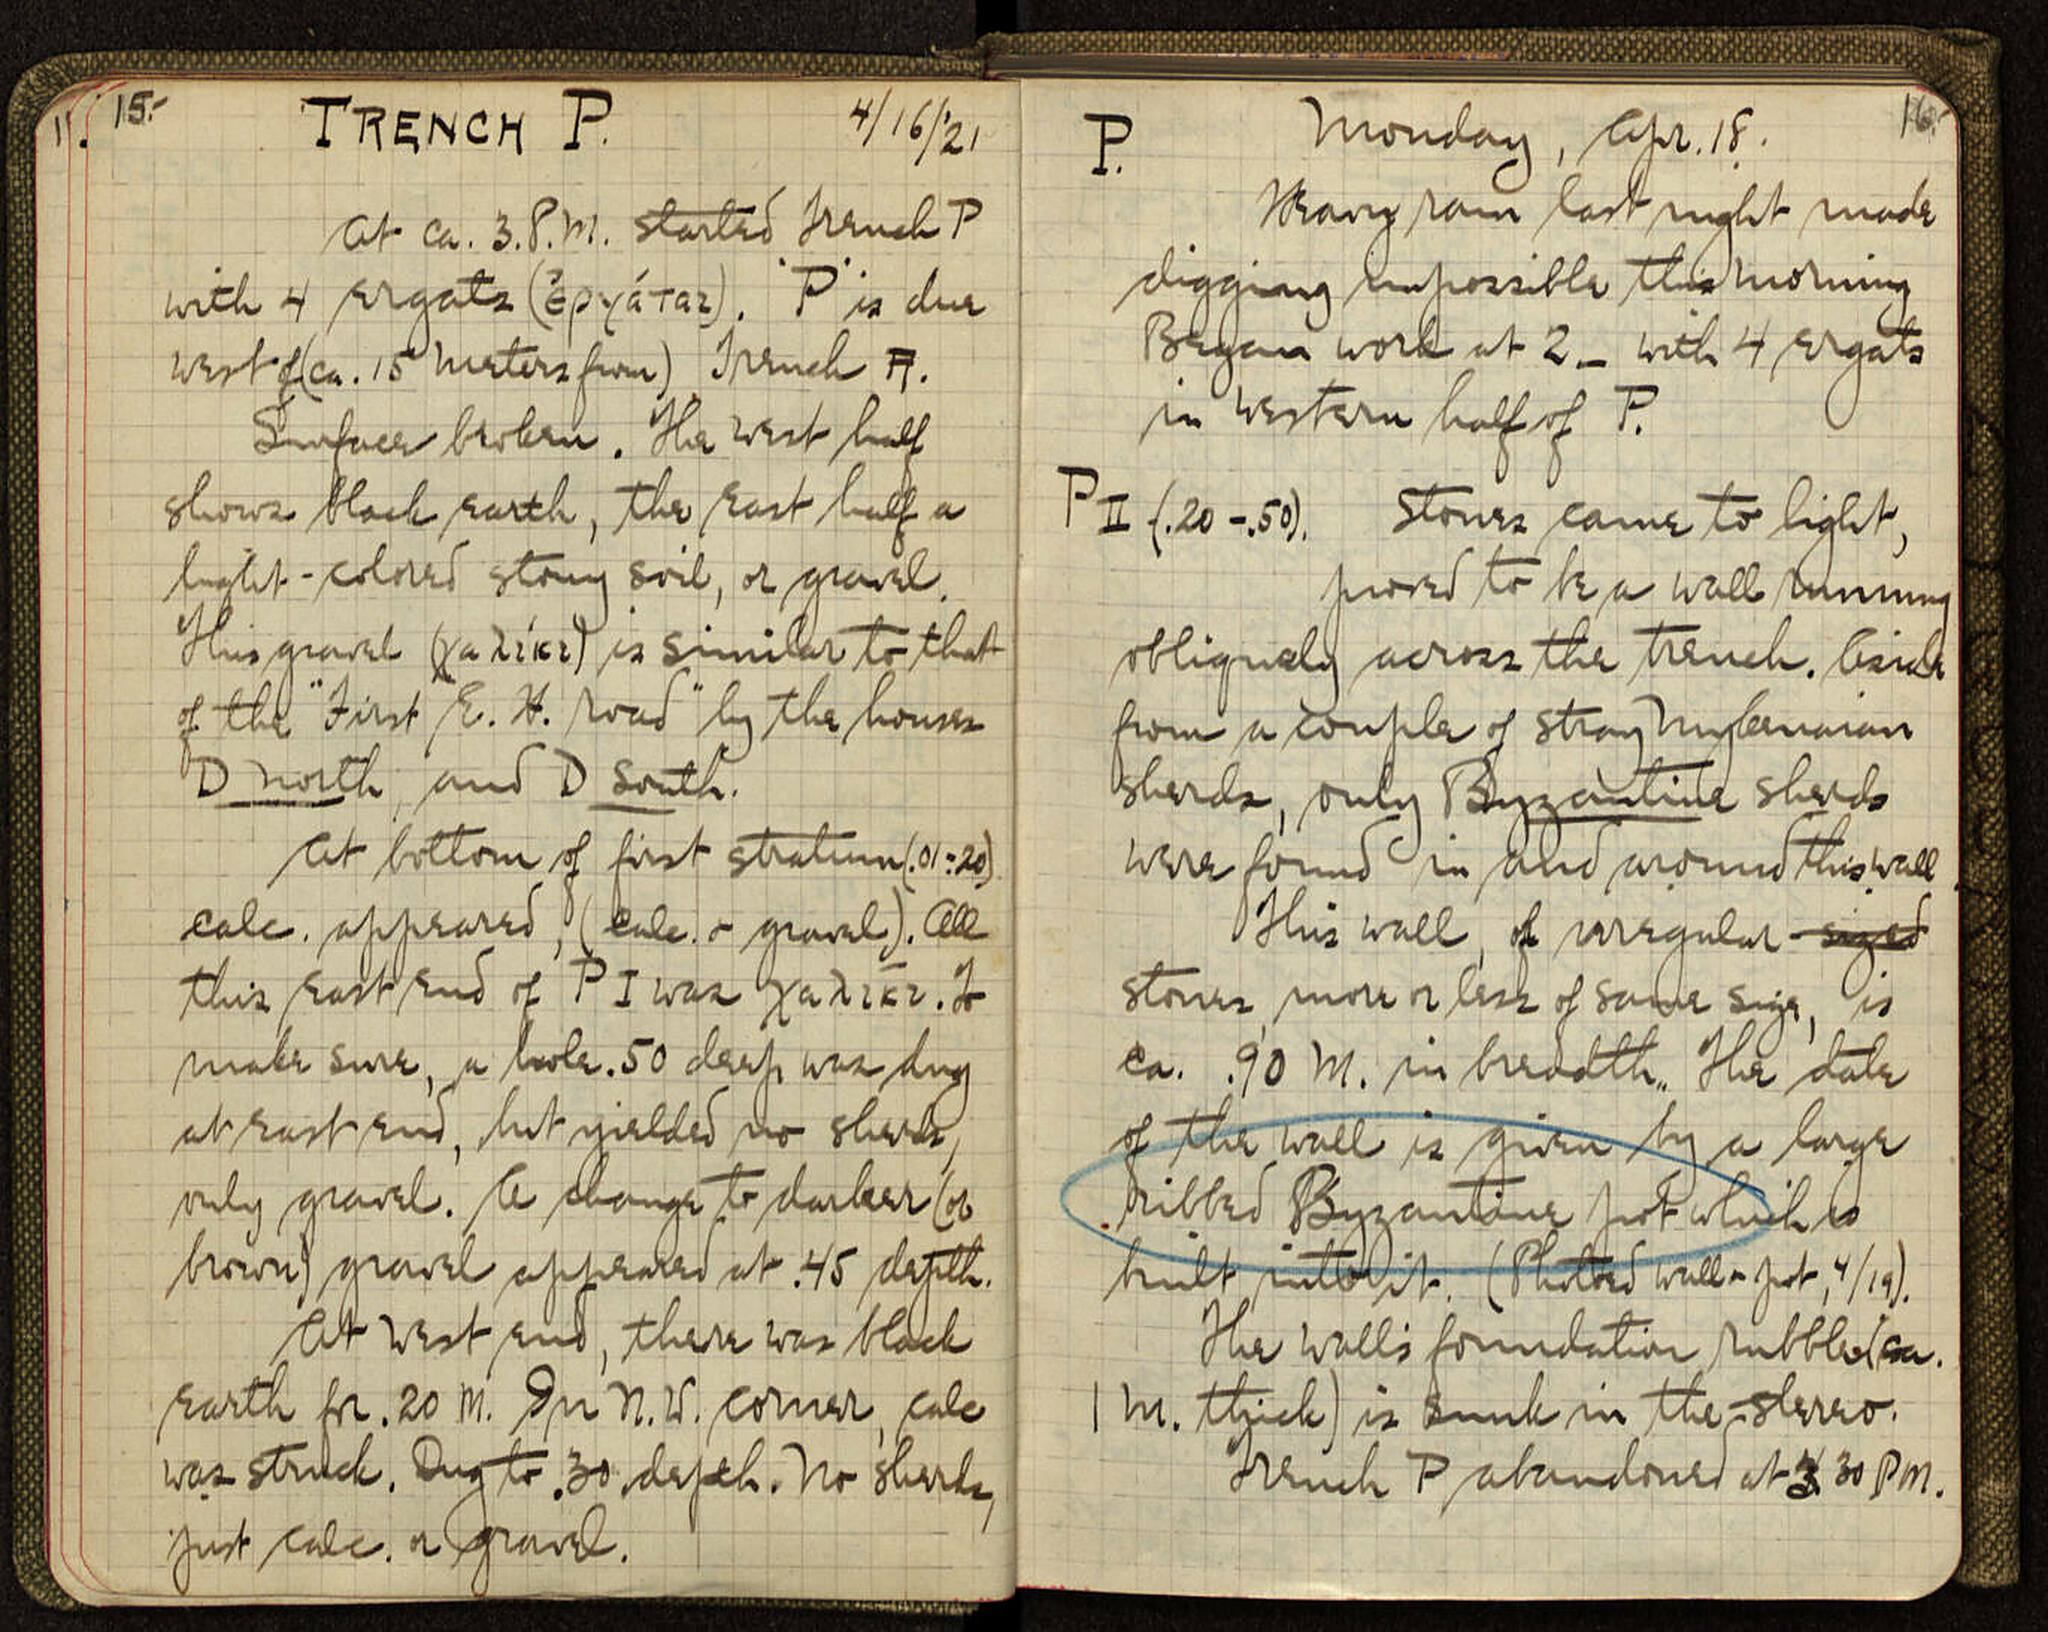 11. 15.
TRENCH P. 4/16/'21
At ca. 3.P.M. started Trench P
with 4 ergats (ἐργάται). "P" is due
west of (ca. 15 meters from) Trench A.
Surface broken. The west half
shows black earth, the east half a
light-colored stony soil, or gravel.
This gravel (χαλίκι) is similar to that
of the "First E. H. road" by the houses
D north, and D south.
At bottom of first stratum (.01-.20)
calc. appeared, (calc. & gravel). All
this east end of P I was χαλίκι. To
make sure, a hole .50 deep was dug
at east end, but yielded no sherds,
only gravel. A change to darker (or
brown) gravel appeared at .45 depth.
At west end, there was black
earth for .20 M. In N.W. corner, calc
was struck. Dug to .30 depth. No sherds,
just calc. or gravel.
16.
P. Monday, Apr. 18.
Heavy rain last night made
digging impossible this morning
Began work at 2_ with 4 ergats
in western half of P.
P II (.20-.50). Stones came to light,
proved to be a wall running
obliquely across the trench. Aside
from a couple of stray Mycenaean
sherds, only Byzantine sherds
were found in and around this wall.
This wall, of irregular sized
stones, more or less of same size, is
ca. .90 M. in breadth. The date
of the wall is given by a large
ribbed Byzantine pot which is
built into it. (Photoed wall & pot, 4/19).
The wall's foundation rubble (ca.
1 m. thick) is sunk in the stereo.
Trench P abandoned at 30 P.M.